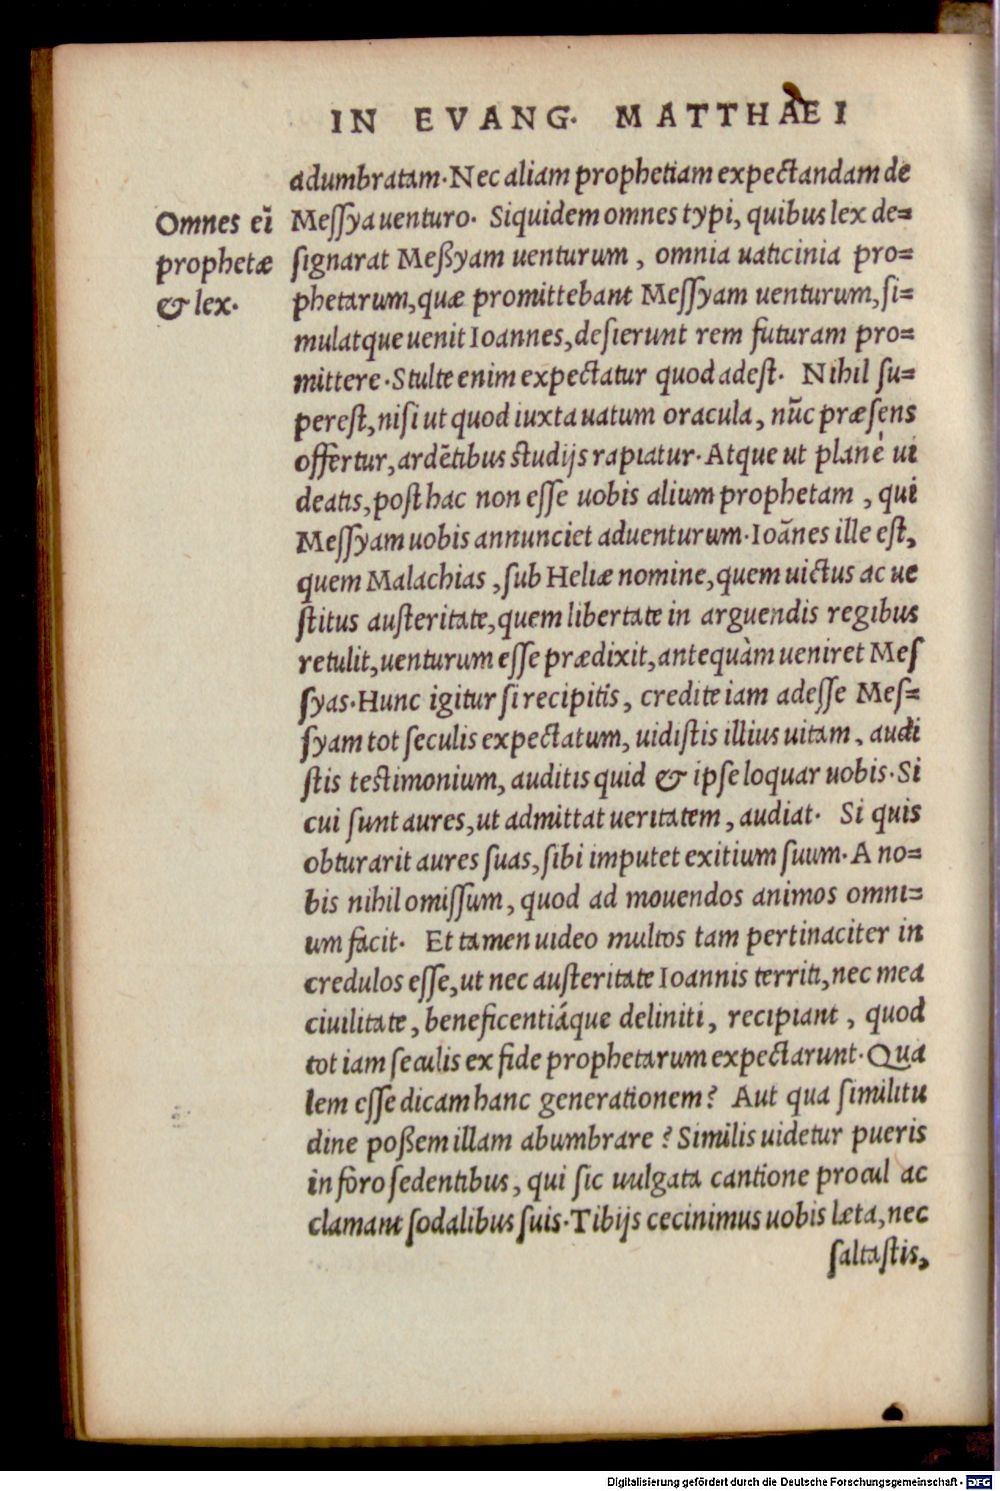 IN EVANG. MATTHAEI
adumbratam. Nec aliam prophetiam expectandam de
Omnes eĩ
prophetæ
& lex.
Meſſya uenturo. Siquidem omnes typi, quibus lex de=
ſignarat Meßyam uenturum, omnia uaticinia pro=
phetarum, quæ promittebant Meſſyam uenturum, ſi=
mulatque uenit Ioannes, deſierunt rem futuram pro=
mittere. Stulte enim expectatur quod adest. Nihil ſu=
pereſt, niſi ut quod iuxta uatum oracula, nũc præſens
offertur, ardẽtibus ſtudijs rapiatur. Atque ut planè ui
deatis, poſt hac non eſſe uobis alium prophetam, qui
Meſſyam uobis annunciet aduenturum. Ioãnes ille eſt,
quem Malachias, ſub Heliæ nomine, quem uictus ac ue
ſtitus auſteritate, quem libertate in arguendis regibus
retulit, uenturum eſſe prædixit, antequàm ueniret Meſ
ſyas. Hunc igitur ſi recipitis, credite iam adeſſe Meſ=
ſyam tot ſeculis expectatum, uidiſtis illius uitam, audi
ſtis teſtimonium, auditis quid & ipſe loquar uobis. Si
cui ſunt aures, ut admittat ueritatem, audiat. Si quis
obturarit aures ſuas, ſibi imputet exitium ſuum. A no=
bis nihil omiſſum, quod ad mouendos animos omni=
um facit. Et tamen uideo multos tam pertinaciter in
credulos eſſe, ut nec auſteritate Ioannis territi, nec mea
ciuilitate, beneficentiáque deliniti, recipiant, quod
tot iam ſeculis ex fide prophetarum expectarunt. Qua
lem eſſe dicam hanc generationem? Aut qua ſimilitu
dine poßem illam abumbrare? Similis uidetur pueris
in foro ſedentibus, qui ſic uulgata cantione procul ac
clamant ſodalibus ſuis. Tibijs cecinimus uobis læta, nec
ſaltaſtis,
Digitalisierung gefördert durch die Deutsche Forschungsgemeinschaft - DFG